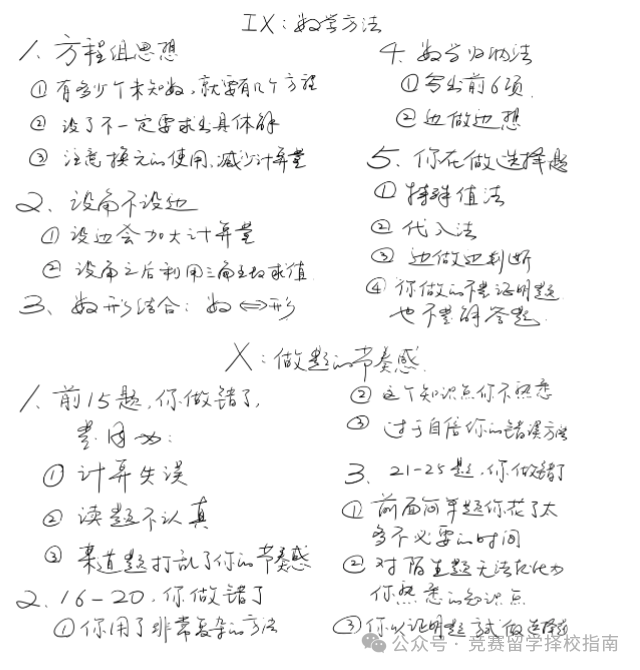 IX：数学方法
1、方程组思想
① 有多少个未知数，就要有几个方程
② 设了不一定要求出具体解
③ 注意换元的使用，减少计算量
2、设角不设边
① 设边会加大计算量
② 设角之后利用三角函数求值
3、数形结合：数⇔形
4、数学归纳法
①写出前6项
②边做边想
5、你在做选择题
① 特殊值法
② 代入法
③ 边做边判断
④ 你做的不是证明题
也不是解答题
X：做题的节奏感
1、前15题，你做错了，
是因为：
① 计算失误
② 读题不认真
③ 某道题打乱了你的节奏感
2、16-20，你做错了
①你用了非常复杂的方法
② 这个知识点你不熟悉
③ 过于自信你的错误方法
3、21-25题，你做错了
① 前面简单题你花了太
多不必要的时间
② 对陌生题无法转化为
你熟悉的知识点
③你以证明题式做选择题
公众号·竞赛留学择校指南